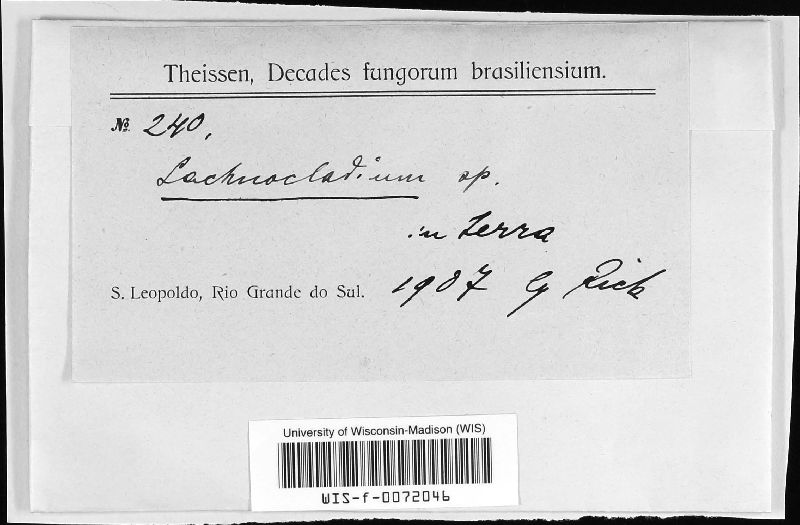 Theissen, Decades fungorum brasiliensium.
№ 240.
Lachnocladium sp.
in terra
S. Leopoldo, Rio Grande do Sul. 1907 lg Rick
University of Wisconsin-Madison (WIS)
WIS-f-0072046